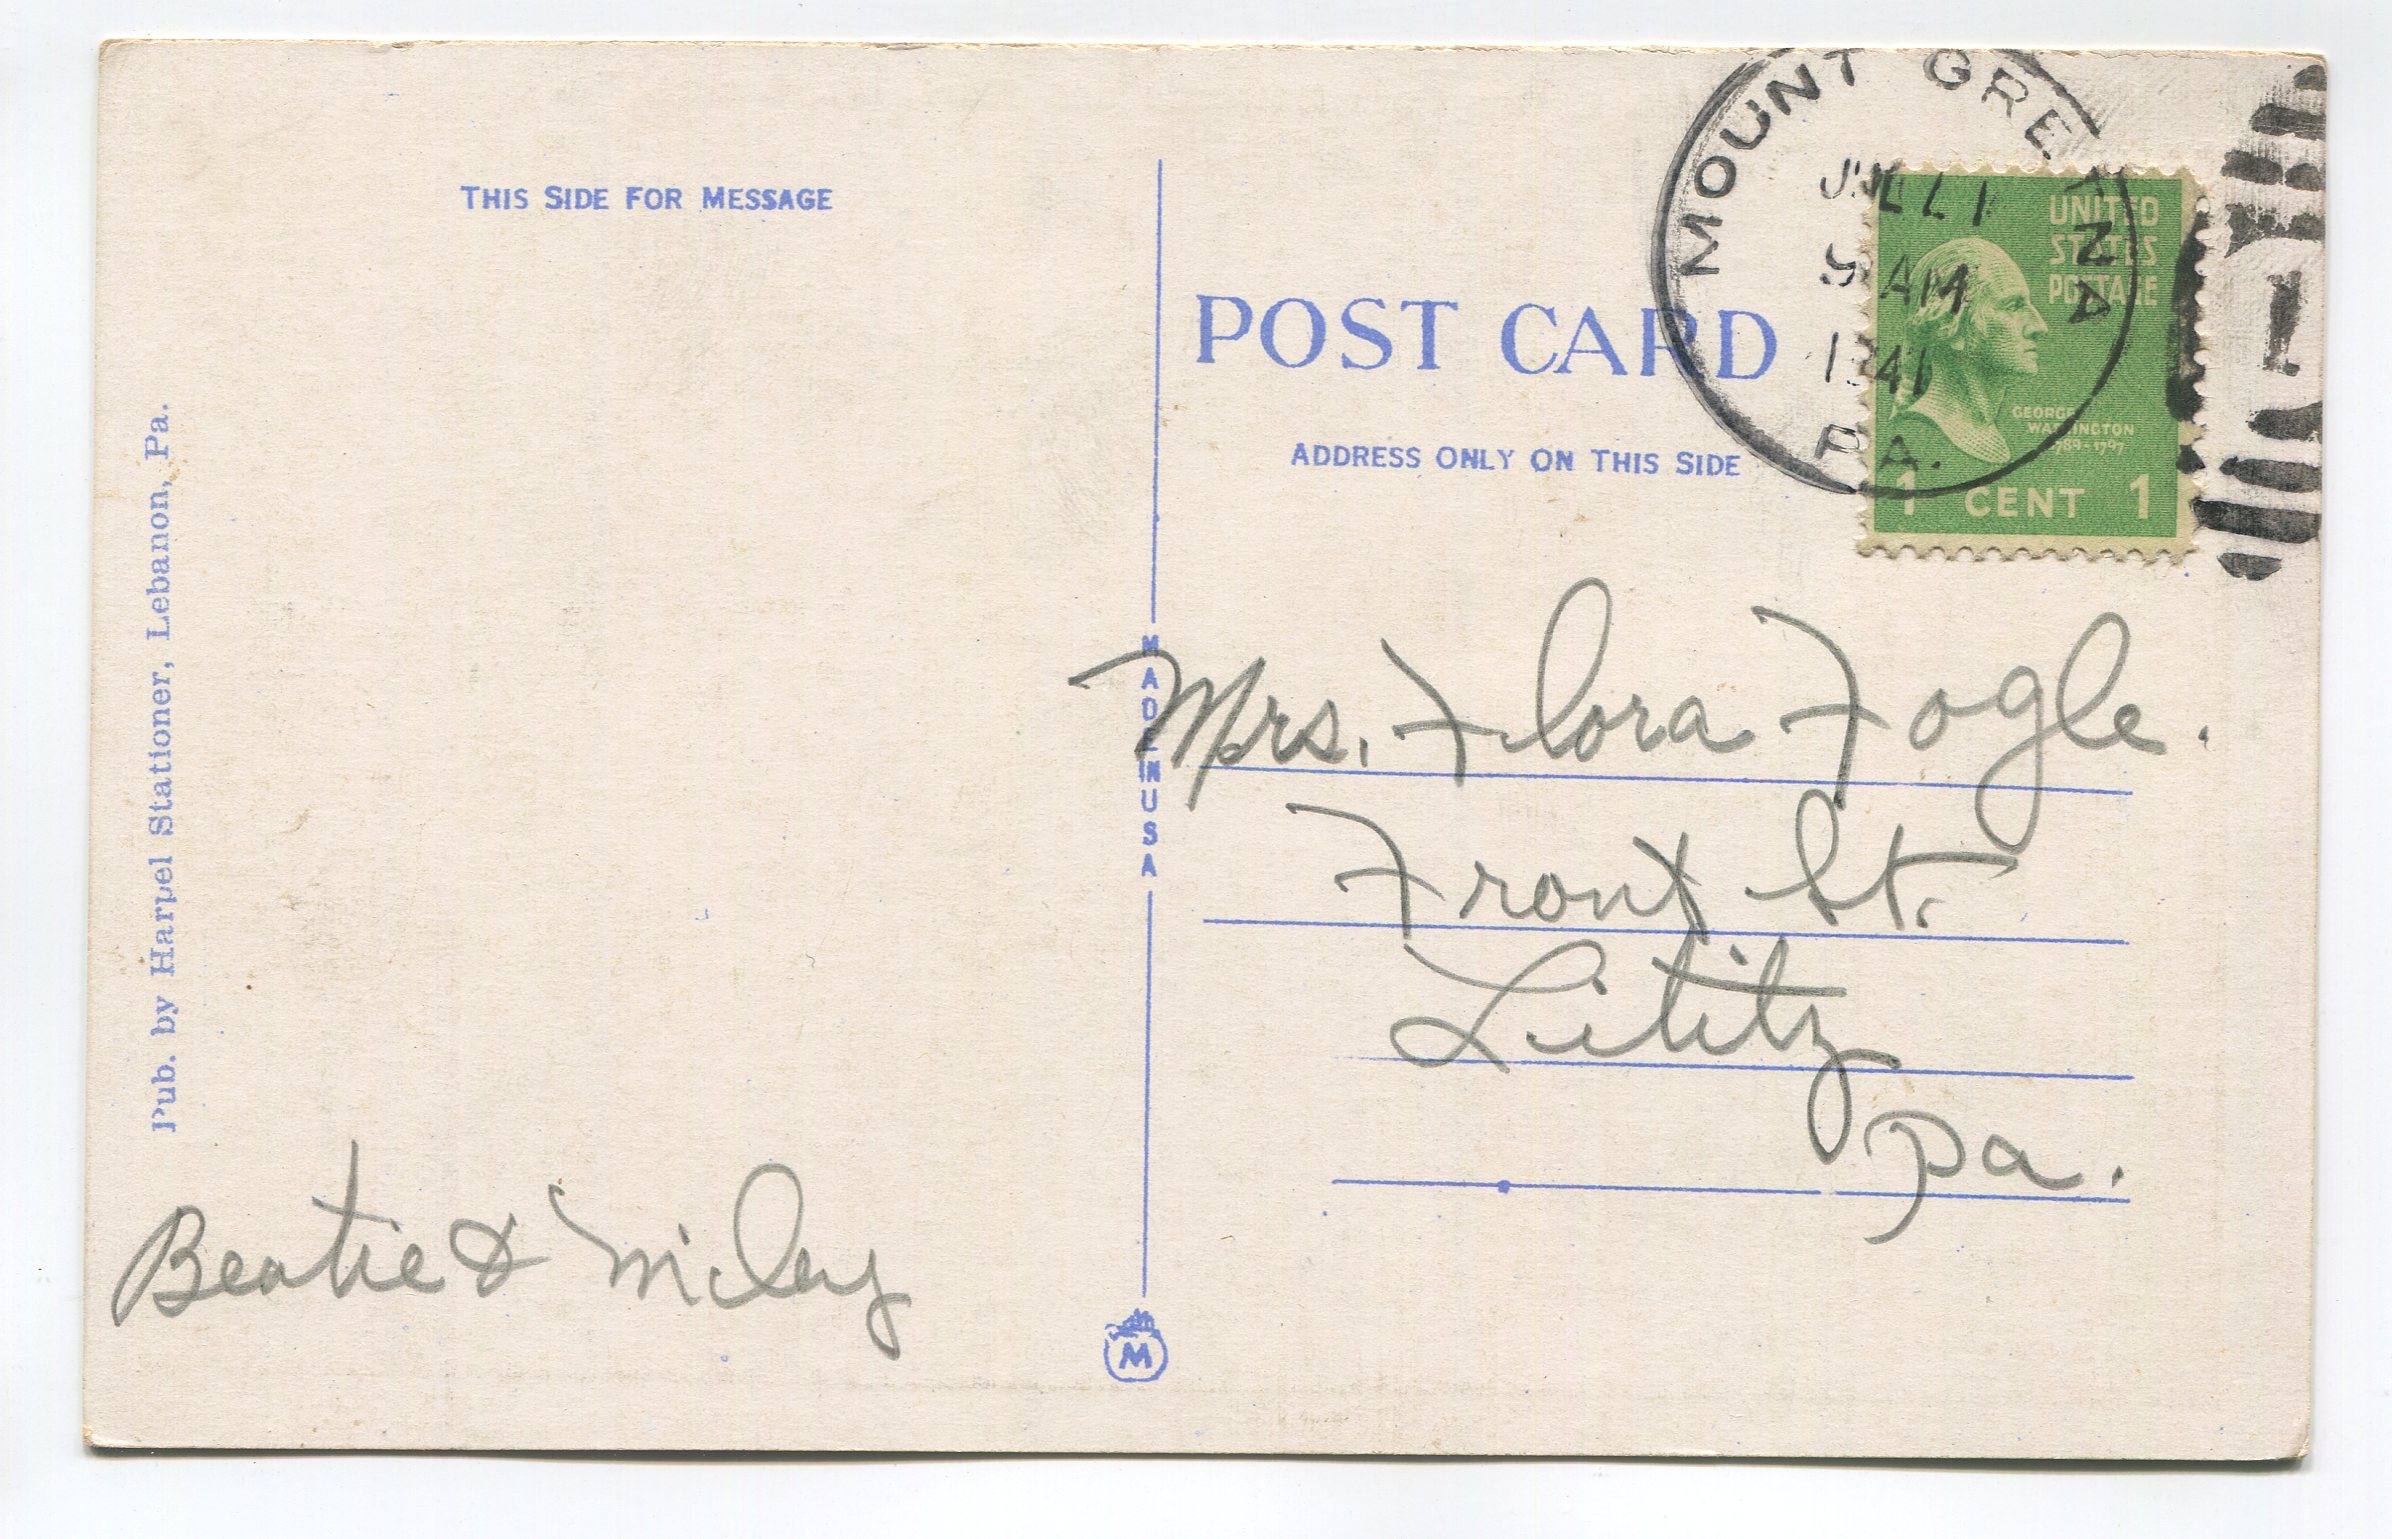 THIS SIDE FOR MESSAGE
Pub. by Harpel Stationer, Lebanon, Pa.
Beatie & Miley
MADE IN USA
M
POST CARD
ADDRESS ONLY ON THIS SIDE
MOUNT GRETNA
AM
1941
PA.
UNITED
STATES
POSTAGE
GEORGE
WASHINGTON
1789-1797
1 CENT 1
1
Mrs. Flora Fogle.
Front St.
Lititz
Pa.